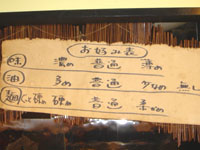 お好み表
味 濃め 普通 薄め
油 多め 普通 少なめ 無し
麺 硬め 普通 柔かめ